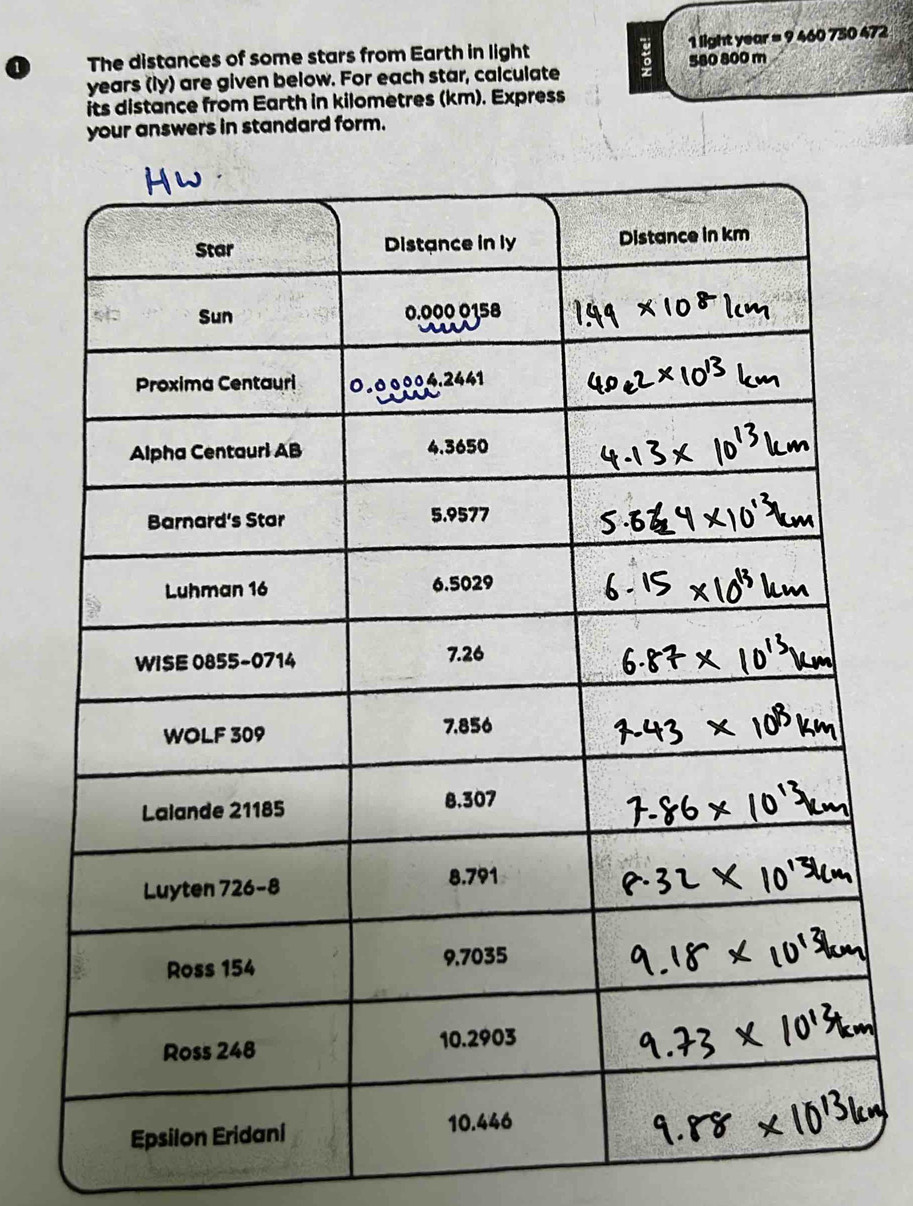 1
The distances of some stars from Earth in light
years (ly) are given below. For each star, calculate
its distance from Earth in kilometres (km). Express
your answers in standard form.
Note!
1 light year = 9 460 730 472
580 800 m
HW
Star Distance in ly Distance in km
Sun 0.000 0158 1.49 × 10⁸ km
Proxima Centauri 0.00004.2441 40.2 × 10¹³ km
Alpha Centauri AB 4.3650 4.13 × 10¹³ km
Barnard's Star 5.9577 × 10¹³ km
Luhman 16 6.5029 6.15 × 10¹³ km
WISE 0855-0714 7.26 6.87 × 10¹³ km
WOLF 309 7.856 7.43 × 10¹³ km
Lalande 21185 8.307 7.86 × 10¹³ km
Luyten 726-8 8.791 8.32 × 10¹³ km
Ross 154 9.7035 9.18 × 10¹³ km
Ross 248 10.2903 9.73 × 10¹³ km
Epsilon Eridani 10.446 9.88 × 10¹³ km